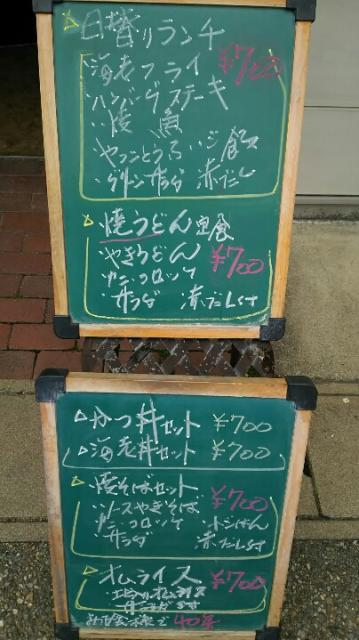 日替りランチ
海老フライ ¥700
ハンバーグステーキ
焼 魚
やっことうふ ご飯
グリーンサラダ 赤だし
焼うどん定食
やきうどん ¥700
カニコロッケ
サラダ 赤だし
かつ丼セット ¥700
海老丼セット ¥700
焼そばセット ¥700
ソースやきそば
カニコロッケ
サラダ 赤だし
オムライス ¥700
40年